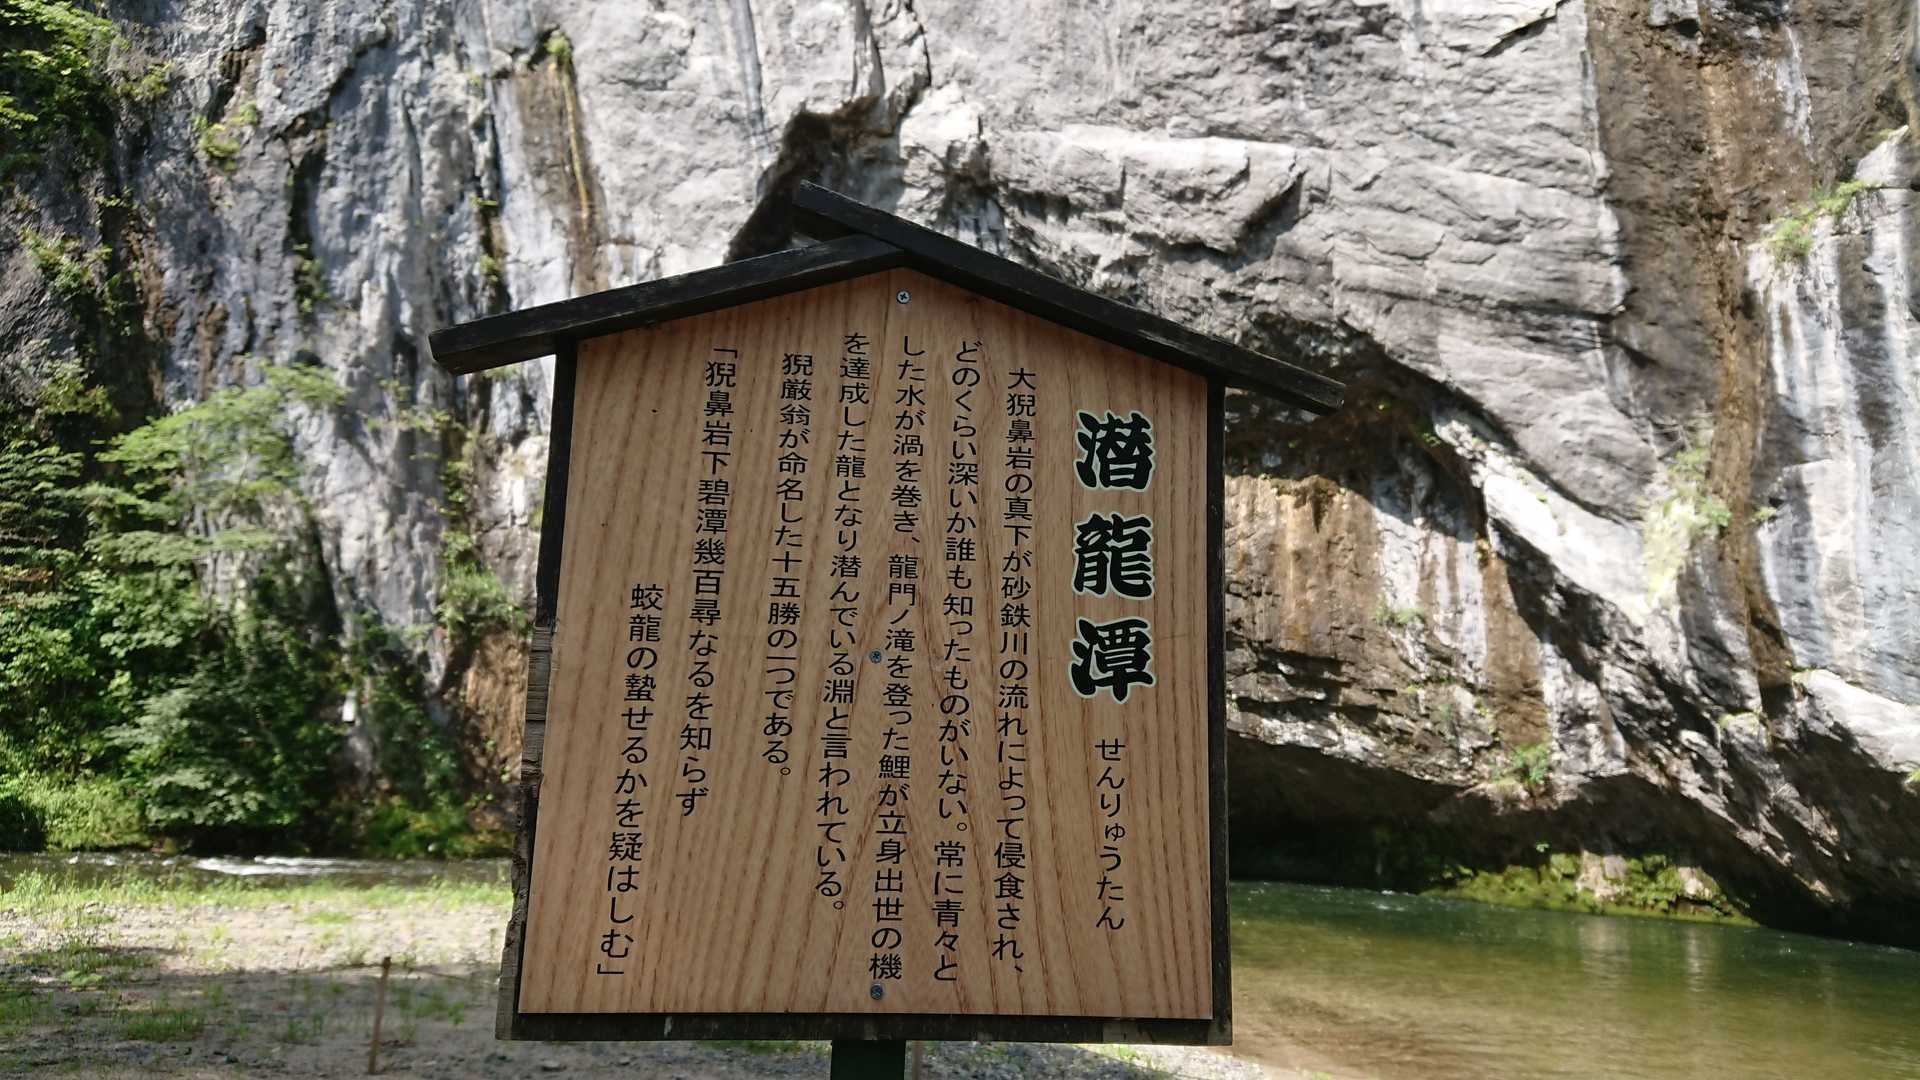 潜龍潭 せんりゅうたん
大猊鼻岩の真下が砂鉄川の流れによって侵食され、
どのくらい深いか誰も知ったものがいない。常に青々と
した水が渦を巻き、龍門ノ滝を登った鯉が立身出世の機
を達成した龍となり潜んでいる淵と言われている。
猊厳翁が命名した十五勝の一つである。
「猊鼻岩下碧潭幾百尋なるを知らず
蛟龍の蟄せるかを疑はしむ」